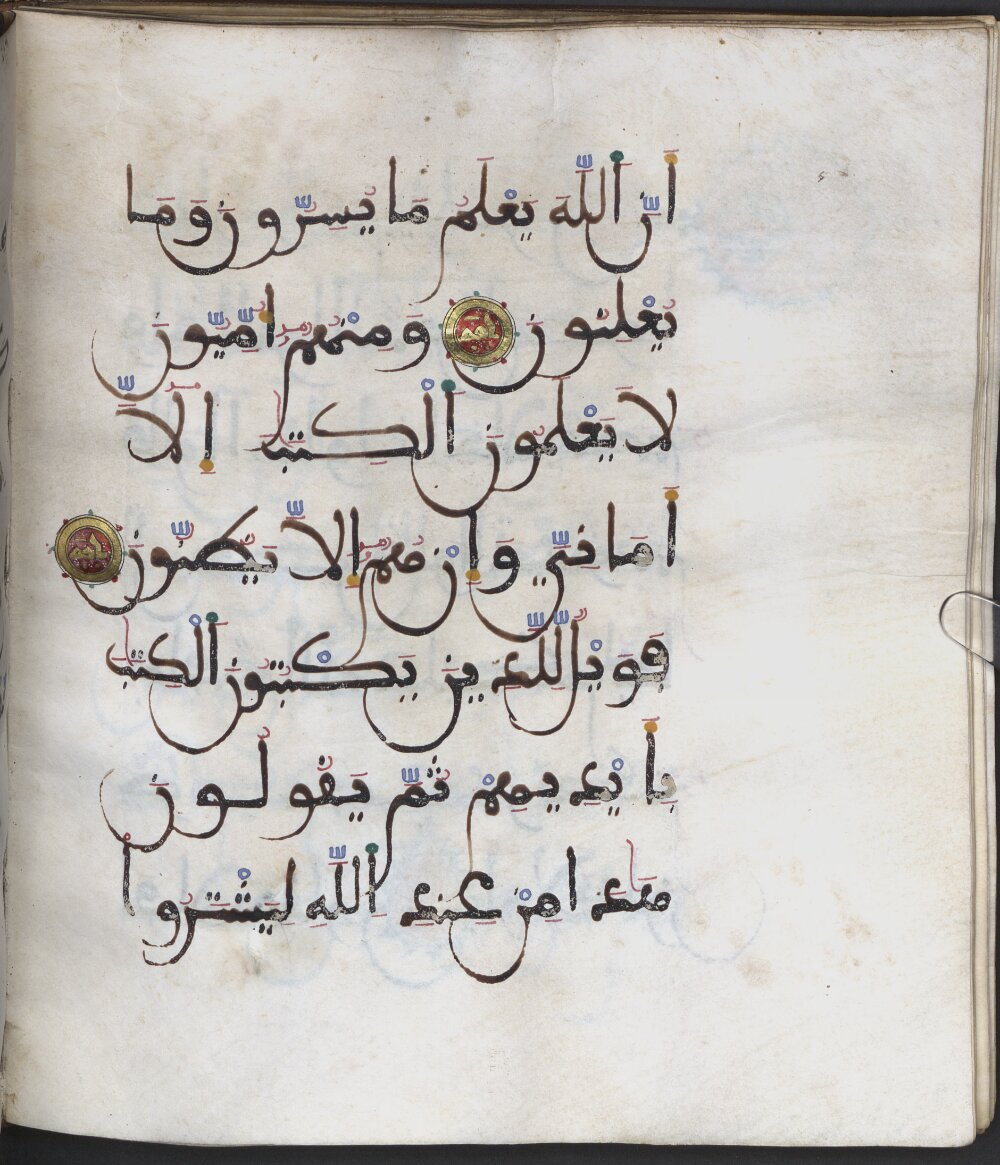 أَنَّ ٱللَّهَ يَعْلَمُ مَا يُسِرُّونَ وَمَا
يُعْلِنُونَ وَمِنْهُمُۥٓ أُمِّيُّونَ
لَا يَعْلَمُونَ ٱلْكِتَٰبَ إِلَّآ
أَمَانِيَّ وَإِنْ هُمُۥٓ إِلَّا يَظُنُّونَ
فَوَيْلٌ لِّلَّذِينَ يَكْتُبُونَ ٱلْكِتَٰبَ
بِأَيْدِيهِمْ ثُمَّ يَقُولُونَ
هَٰذَا مِنْ عِندِ ٱللَّهِ لِيَشْتَرُوا